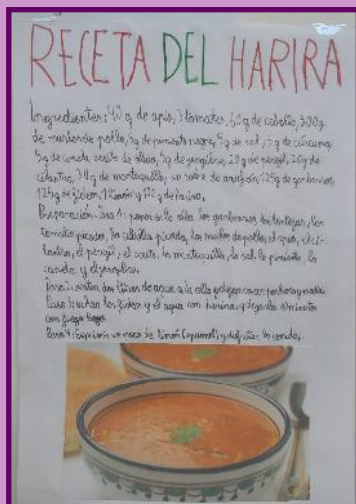 RECETA DEL HARIRA
Ingredientes: 40 g de apio, 3 tomates, 50 g de cebolla, 300g
de muslos de pollo, 5g de pimienta negra, 5g de sal, 5g de cúrcuma,
5g de canela, aceite de oliva, 5g de gengibre, 20g de perejil, 20g de
cilantro, 30g de mantequilla, un sobre de azafrán, 125g de garbanzos,
125g de fideos, 1 limón y de harina.
Preparación: Paso 1: poner en la olla los garbanzos, las lentejas, los
tomates picados, la cebolla picada, los muslos de pollo, el apio, el cil-
antro, el perejil, el aceite, la mantequilla, la sal, la pimienta, la
canela y el gengibre.
Paso 2: echar dos litros de agua a la olla y dejar cocer por hora y media.
Paso 3: echar los fideos y el agua con harina y dejarlo minutos
con fuego
Paso 4: Exprimir un poco de limón (opcional) y disfrutar la comida.